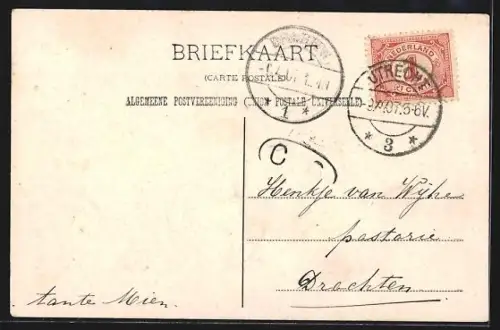 BRIEFKAART
(CARTE POSTALE)
ALGEMEENE POSTVEREENIGING (UNION POSTALE UNIVERSELLE)
1
NEDERLAND
1
UTRECHT
5-6V.
3
C
Henkje van Wijhe
pastorie
Drachten
tante Mien.